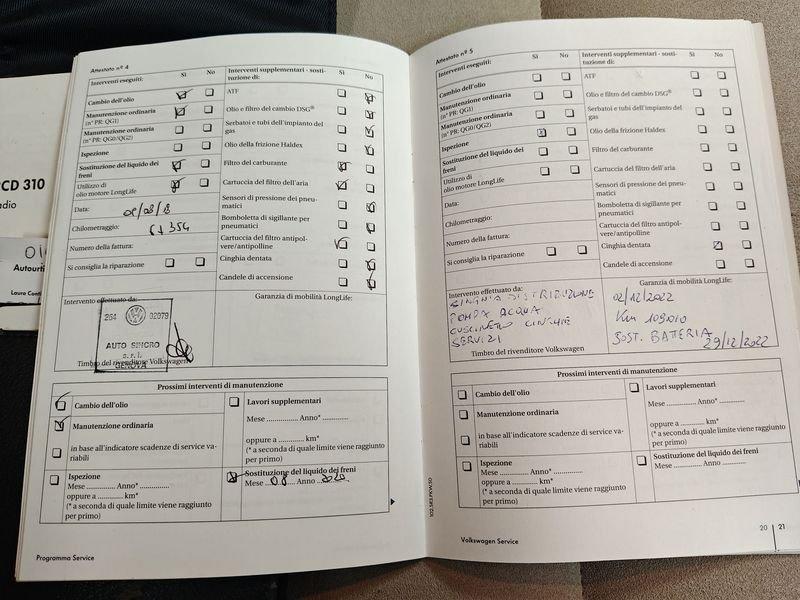 RCD 310
adio
Autoradio
Attestato nº 4
Interventi eseguiti:
Sì
No
Interventi supplementari - sostituzione di:
Sì
No
Cambio dell'olio
Manutenzione ordinaria
(nº PR: QG1)
Manutenzione ordinaria
(nº PR: QG0/QG2)
Ispezione
Sostituzione del liquido dei
freni
Utilizzo di
olio motore LongLife
Data:
02/08/18
Chilometraggio:
61354
Numero della fattura:
Si consiglia la riparazione
ATF
Olio e filtro del cambio DSG®
Serbatoi e tubi dell'impianto del
gas
Olio della frizione Haldex
Filtro del carburante
Cartuccia del filtro dell'aria
Sensori di pressione dei pneu-
matici
Bomboletta di sigillante per
pneumatici
Cartuccia del filtro antipol-
vere/antipolline
Cinghia dentata
Candele di accensione
Intervento effettuato da:
264 02079
AUTO SINCRO
s.r.l.
GENOVA
Timbro del rivenditore Volkswagen
Garanzia di mobilità LongLife:
Prossimi interventi di manutenzione
Cambio dell'olio
Manutenzione ordinaria
in base all'indicatore scadenze di service va-
riabili
Ispezione
Mese .............. Anno* ..............
oppure a .............. km*
(* a seconda di quale limite viene raggiunto
per primo)
Lavori supplementari
Mese .............. Anno* ..............
oppure a .............. km*
(* a seconda di quale limite viene raggiunto
per primo)
Sostituzione del liquido dei freni
Mese 08 Anno 2020
Programma Service
Attestato nº 5
Interventi eseguiti:
Sì
No
Interventi supplementari - sosti-
tuzione di:
Sì
No
Cambio dell'olio
Manutenzione ordinaria
(nº PR: QG1)
Manutenzione ordinaria
(nº PR: QG0/QG2)
Ispezione
Sostituzione del liquido dei
freni
Utilizzo di
olio motore LongLife
Data:
Chilometraggio:
Numero della fattura:
Si consiglia la riparazione
ATF
Olio e filtro del cambio DSG®
Serbatoi e tubi dell'impianto del
gas
Olio della frizione Haldex
Filtro del carburante
Cartuccia del filtro dell'aria
Sensori di pressione dei pneu-
matici
Bomboletta di sigillante per
pneumatici
Cartuccia del filtro antipol-
vere/antipolline
Cinghia dentata
Candele di accensione
Intervento effettuato da:
CINGHIA DISTRIBUZIONE
POMPA ACQUA
CUSCINETTO CINGHIE
SERVIZI
Timbro del rivenditore Volkswagen
Garanzia di mobilità LongLife:
02/12/2022
Km 109010
SOST. BATTERIA
29/12/2022
Prossimi interventi di manutenzione
Cambio dell'olio
Manutenzione ordinaria
in base all'indicatore scadenze di service va-
riabili
Ispezione
Mese .............. Anno* ..............
oppure a .............. km*
(* a seconda di quale limite viene raggiunto
per primo)
Lavori supplementari
Mese .............. Anno* ..............
oppure a .............. km*
(* a seconda di quale limite viene raggiunto
per primo)
Sostituzione del liquido dei freni
Mese .............. Anno ..............
Volkswagen Service
20 21